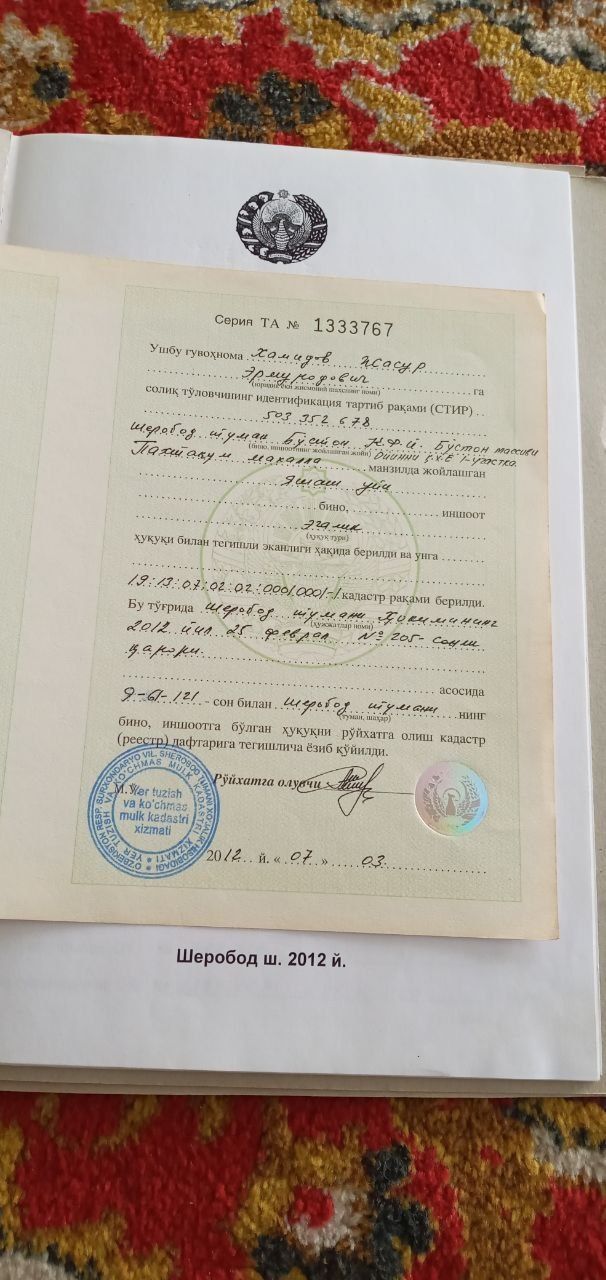 Серия ТА № 1333767
Ушбу гувоҳнома Хамидов Жасур
Эрмуродович га
(юридик ёки жисмоний шахснинг номи)
солиқ тўловчининг идентификация тартиб рақами (СТИР)
503 352 678
Шеробод тумани Бўстон Қ.Ф.Й. Бўстон массиви
(бино, иншоотнинг жойлашган жойи)
Пахтакум махалла манзилда жойлашган
Яшаш уйи
бино, иншоот
Эгалик
(ҳуқуқ тури)
ҳуқуқи билан тегишли эканлиги ҳақида берилди ва унга
19:13:07:02:02:0001/0001/-/ кадастр рақами берилди.
Бу тўғрида Шеробод тумани Ҳокимининг
(ҳужжатлар номи)
2012 йил 25 феврал № 205- сонли
қарори.
асосида
- сон билан Шеробод тумани нинг
(туман, шаҳар)
бино, иншоотга бўлган ҳуқуқни рўйхатга олиш кадастр
(реестр) дафтарига тегишлича ёзиб қўйилди.
Рўйхатга олувчи
М.Ў.
Yer tuzish
va ko'chmas
mulk kadastri
xizmati
2012 й. « 07 » 03
Шеробод ш. 2012 й.